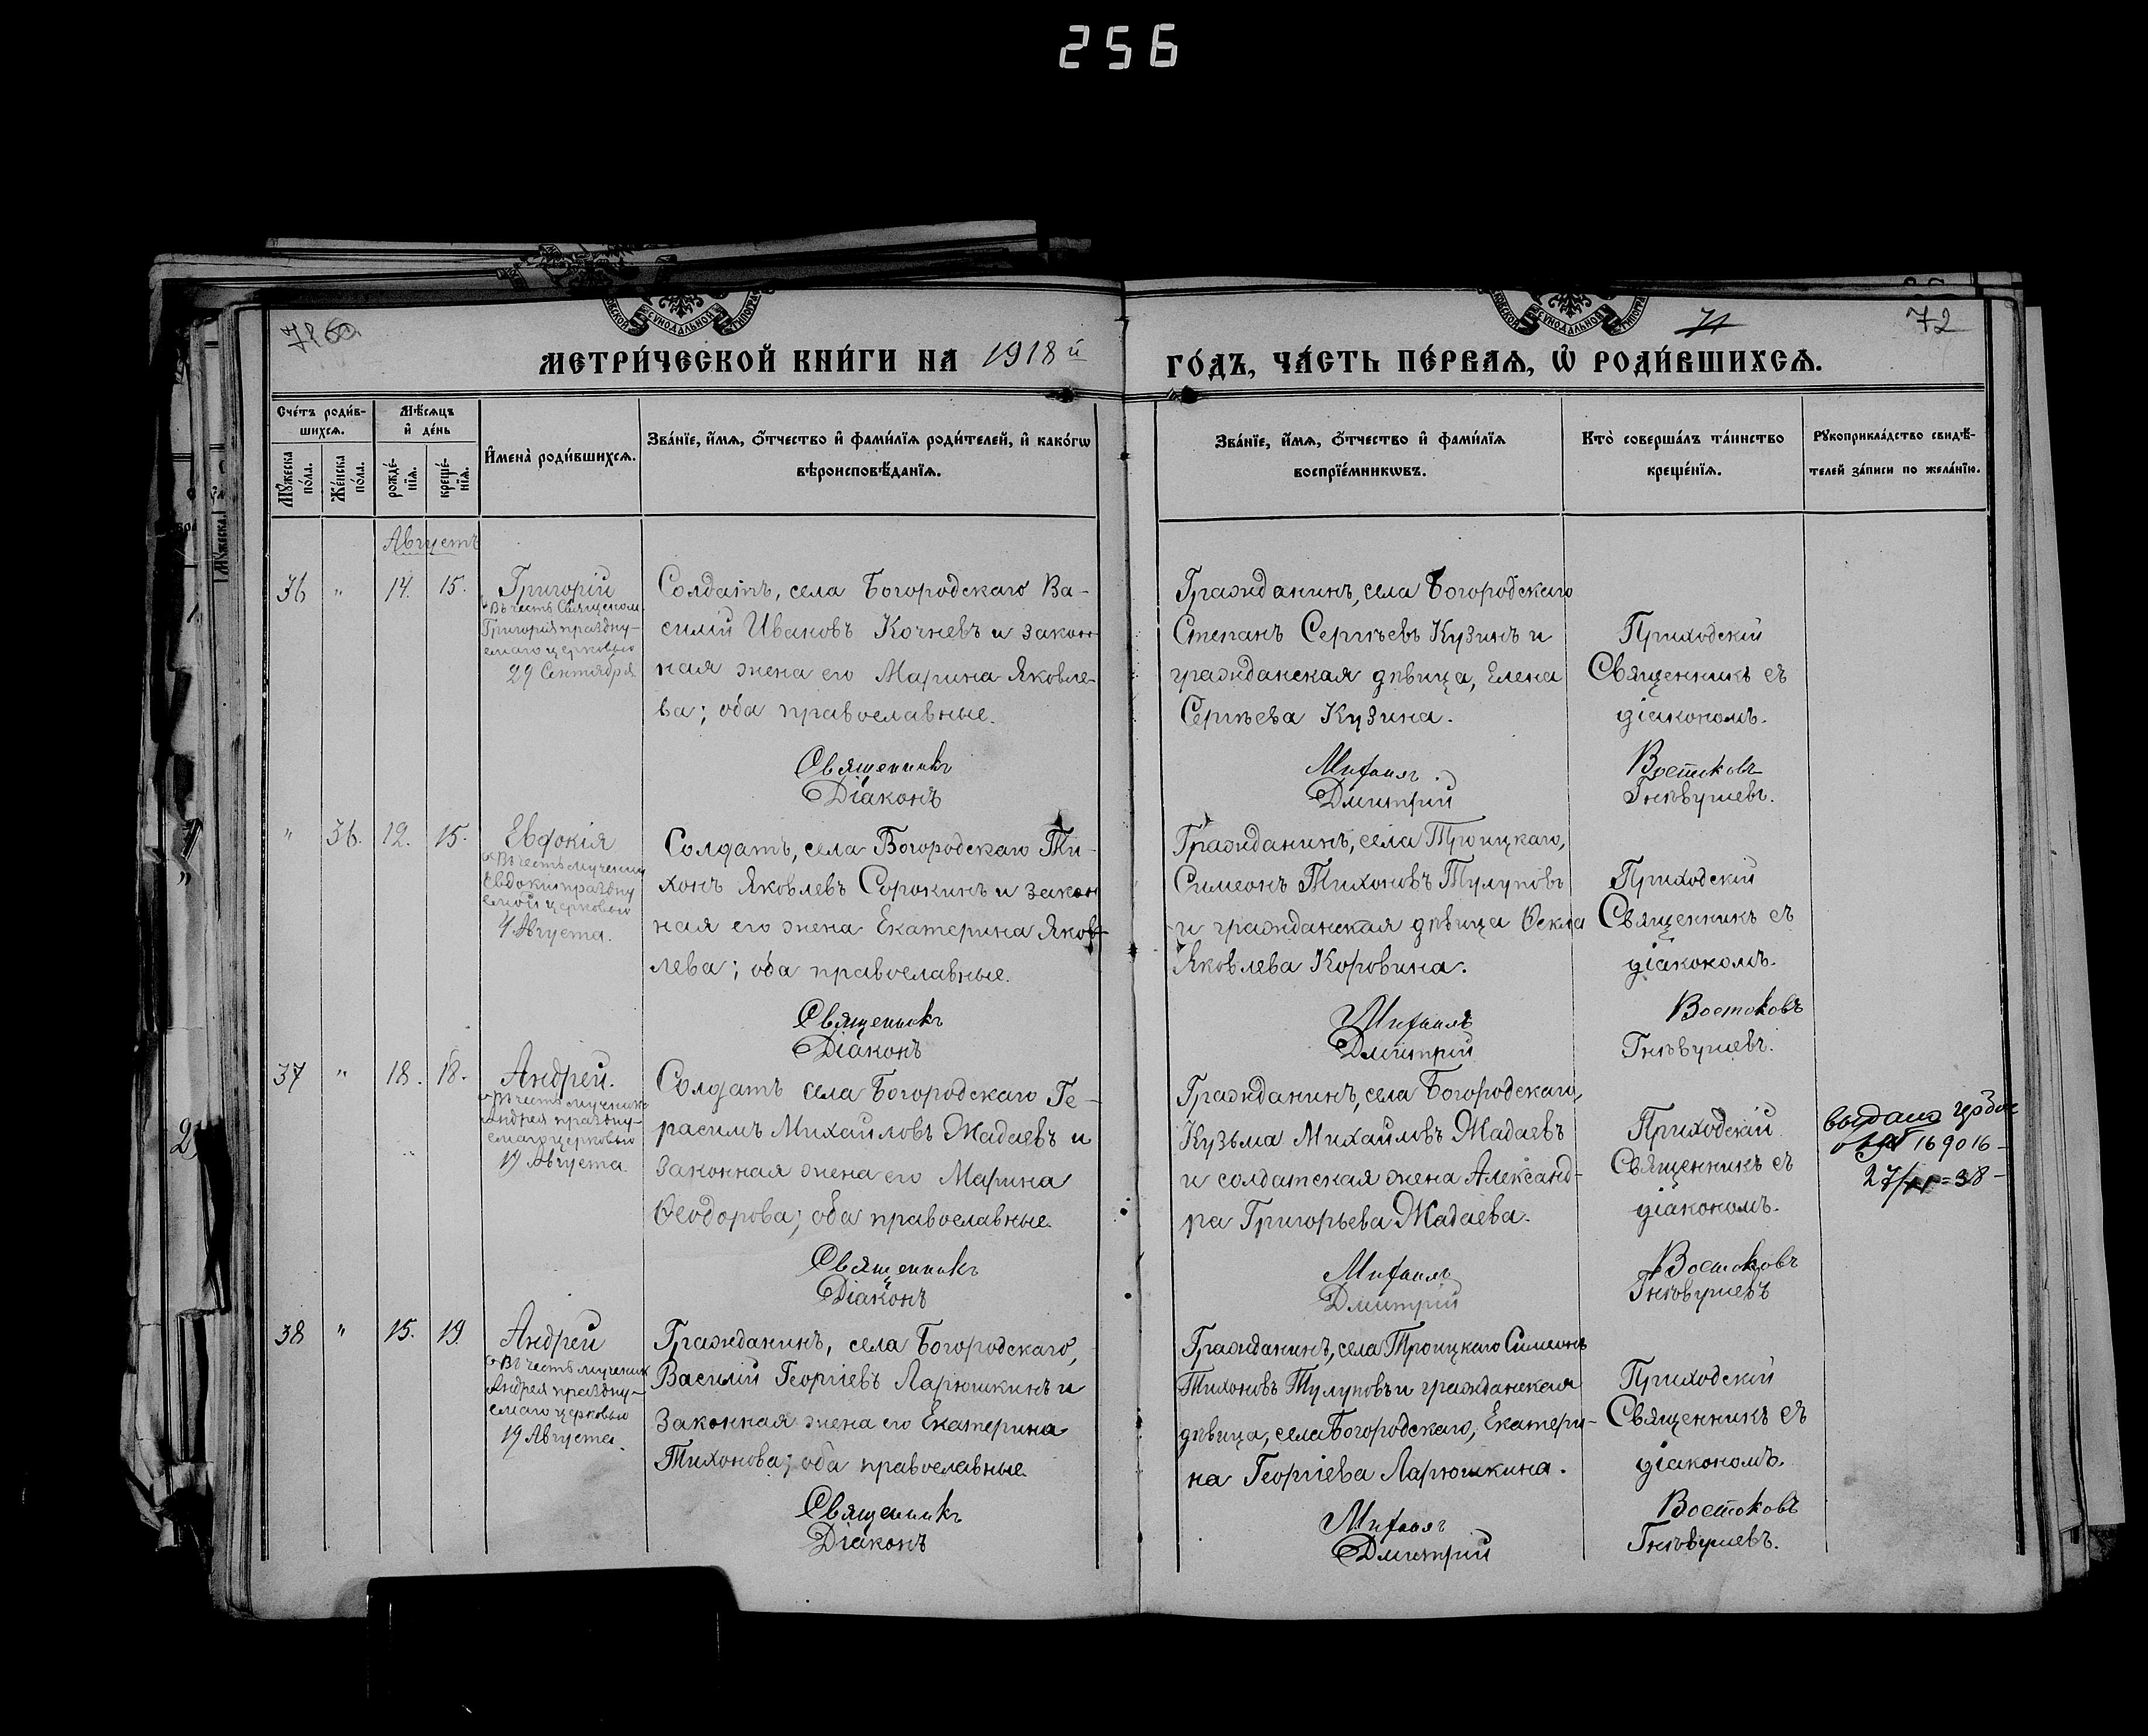 256
72
71
72
МЕТРИ́ЧЕСКОЙ КНИ́ГИ НА 1918й ГО́ДЪ, ЧА́СТЬ ПЕ́РВАѦ, Ѡ РОДИ́ВШИХСѦ.
Сче́тъ роди́в-
шихсѧ.
Мѣ́сѧцъ
и де́нь
Мꙋ́жеска по́ла.
Же́нска по́ла.
рожде́-
нїѧ.
креще́-
нїѧ.
Имена̀ роди́вшихсѧ.
Зва́нїе, и́мѧ, о́тчество и фами́лїѧ роди́телей, и како́гѡ
вѣроисповѣ́данїѧ.
Зва́нїе, и́мѧ, о́тчество и фами́лїѧ
воспрїе́мникѡвъ.
Кто̀ соверша́лъ та́инство
креще́нїѧ.
Рꙋкоприкла́дство свидѣ́-
телей за́писи по жела́нїю.
Августъ
36 " 14. 15.
Григорій
Въ честь Священом.
Григорія праздну-
емаго церковью
29 Сентября
Солдатъ, села Богородскаго Ва-
силий Ивановъ Кочневъ и закон-
ная жена его Марина Яковле-
ва; оба православные.
Священникъ
Діаконъ
Гражданинъ, села Богородскаго
Степанъ Сергѣевъ Кузинъ и
гражданская дѣвица, Елена
Сергѣева Кузина.
Михаилъ
Дмитрий
Приходскій
Священникъ съ
діакономъ.
Востоковъ
Гнѣвушевъ.
" 36. 12. 15.
Евдокія
Въ честь мучениц
Евдокіи праздну
емой церковью
4 Августа.
Солдатъ, села Богородскаго Ти-
хонъ Яковлевъ Сорокинъ и закон
ная его жена Екатерина Яков-
лева; оба православные.
Священникъ
Діаконъ
Гражданинъ, села Троицкаго,
Симеонъ Тихоновъ Тулуповъ
и гражданская дѣвица Ѳекла
Яковлева Коровина.
Михаилъ
Дмитрий
Приходскій
Священникъ съ
діакономъ.
Востоковъ
Гнѣвушевъ.
37 " 18. 18.
Андрей.
Въ честь мученика
Андрея праздну-
емаго церковью
19 Августа.
Солдатъ села Богородскаго Ге-
расимъ Михайловъ Жадаевъ и
законная жена его Марина
Ѳеодорова; оба православные.
Священникъ
Діаконъ
Гражданинъ, села Богородскаго,
Кузьма Михайловъ Жадаевъ
и солдатская жена Александ-
ра Григорьева Жадаева.
Михаилъ
Дмитрій
Приходскій
Священникъ съ
діакономъ.
Востоковъ
Гнѣвушевъ
выдана
169016-
38-
38 " 15. 19.
Андрей
Въ честь мученик
Андрея праздну-
емаго церковью
19 Августа.
Гражданинъ, села Богородскаго,
Василий Георгіевъ Ларюшкинъ и
законная жена его Екатерина
Тихонова; оба православные.
Священникъ
Діаконъ
Гражданинъ, села Троицкаго Симеонъ
Тихоновъ Тулуповъ и гражданская
дѣвица, села Богородскаго, Екатери-
на Георгіева Ларюшкина.
Михаилъ
Дмитрий
Приходскій
Священникъ съ
діакономъ.
Востоковъ
Гнѣвушевъ.